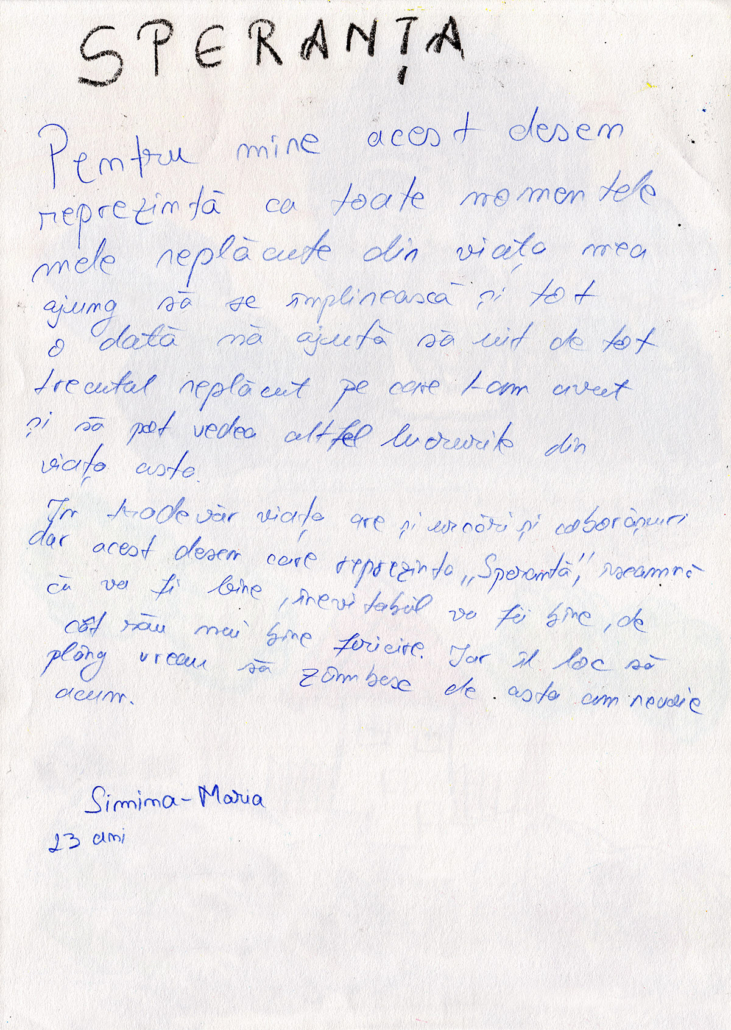 SPERANȚA
Pentru mine acest desen
reprezintă ca toate momentele
mele neplăcute din viața mea
ajung să se împlinească și tot
o dată mă ajută să uit de tot
trecutul neplăcut pe care l-am avut
și să pot vedea altfel lucrurile din
viața asta.
În tradevăr viața are și urcări și coborâșuri
dar acest desen care reprezinta „Speranță”, înseamnă
că va fi bine, inevitabil va fi bine, de
cât rău mai bine fericire. Iar în loc să
plâng vreau să zâmbesc de asta am nevoie
acum.
Simina-Maria
23 ani